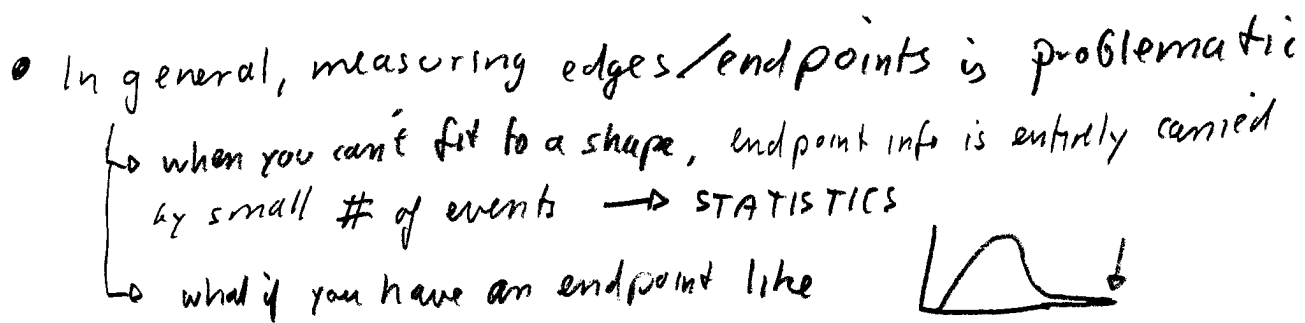 • In general, measuring edges/endpoints is problematic
↳ when you can't fit to a shape, endpoint info is entirely carried
by small # of events → STATISTICS
↳ what if you have an endpoint like